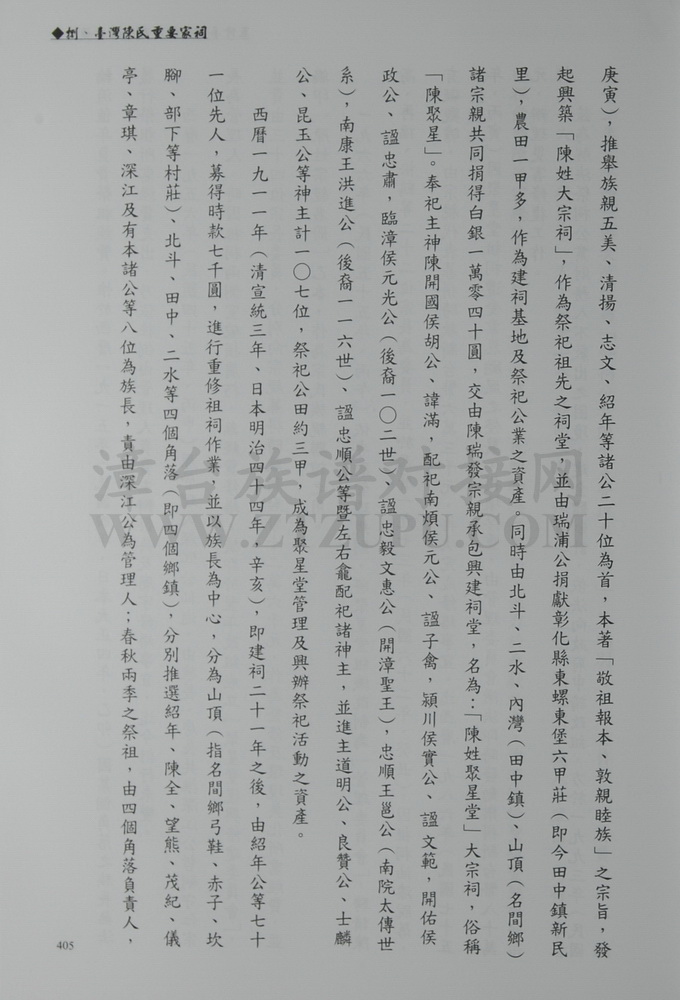 ◆捌、臺灣陳氏重要家祠
庚寅），推舉族親五美、清揚、志文、紹年等諸公二十位為首，本著「敬祖報本、敦親睦族」之宗旨，發
起興築「陳姓大宗祠」，作為祭祀祖先之祠堂，並由瑞浦公捐獻彰化縣東螺東堡六甲莊（即今田中鎮新民
里），農田一甲多，作為建祠基地及祭祀公業之資產。同時由北斗、二水、內灣（田中鎮）、山頂（名間鄉）
諸宗親共同捐得白銀一萬零四十圓，交由陳瑞發宗親承包興建祠堂，名為：「陳姓聚星堂」大宗祠，俗稱
「陳聚星」。奉祀主神陳開國侯胡公、諱滿，配祀南頓侯元公、諡子禽，潁川侯實公、諡文範，開佑侯
政公、諡忠肅，臨漳侯元光公（後裔一〇二世）、諡忠毅文惠公（開漳聖王），忠順王邕公（南院太傅世
系），南康王洪進公（後裔一一六世）、諡忠順公等暨左右龕配祀諸神主，並進主道明公、良贊公、士麟
公、昆玉公等神主計一〇七位，祭祀公田約三甲，成為聚星堂管理及興辦祭祀活動之資產。
西曆一九一一年（清宣統三年、日本明治四十四年，辛亥），即建祠二十一年之後，由紹年公等七十
一位先人，募得時款七千圓，進行重修祖祠作業，並以族長為中心，分為山頂（指名間鄉弓鞋、赤子、坎
腳、部下等村莊）、北斗、田中、二水等四個角落（即四個鄉鎮），分別推選紹年、陳全、望熊、茂紀、儀
亭、章琪、深江及有本諸公等八位為族長，責由深江公為管理人；春秋兩季之祭祖，由四個角落負責人，
405
漳台族谱对接网
WWW.ZTZUPU.COM